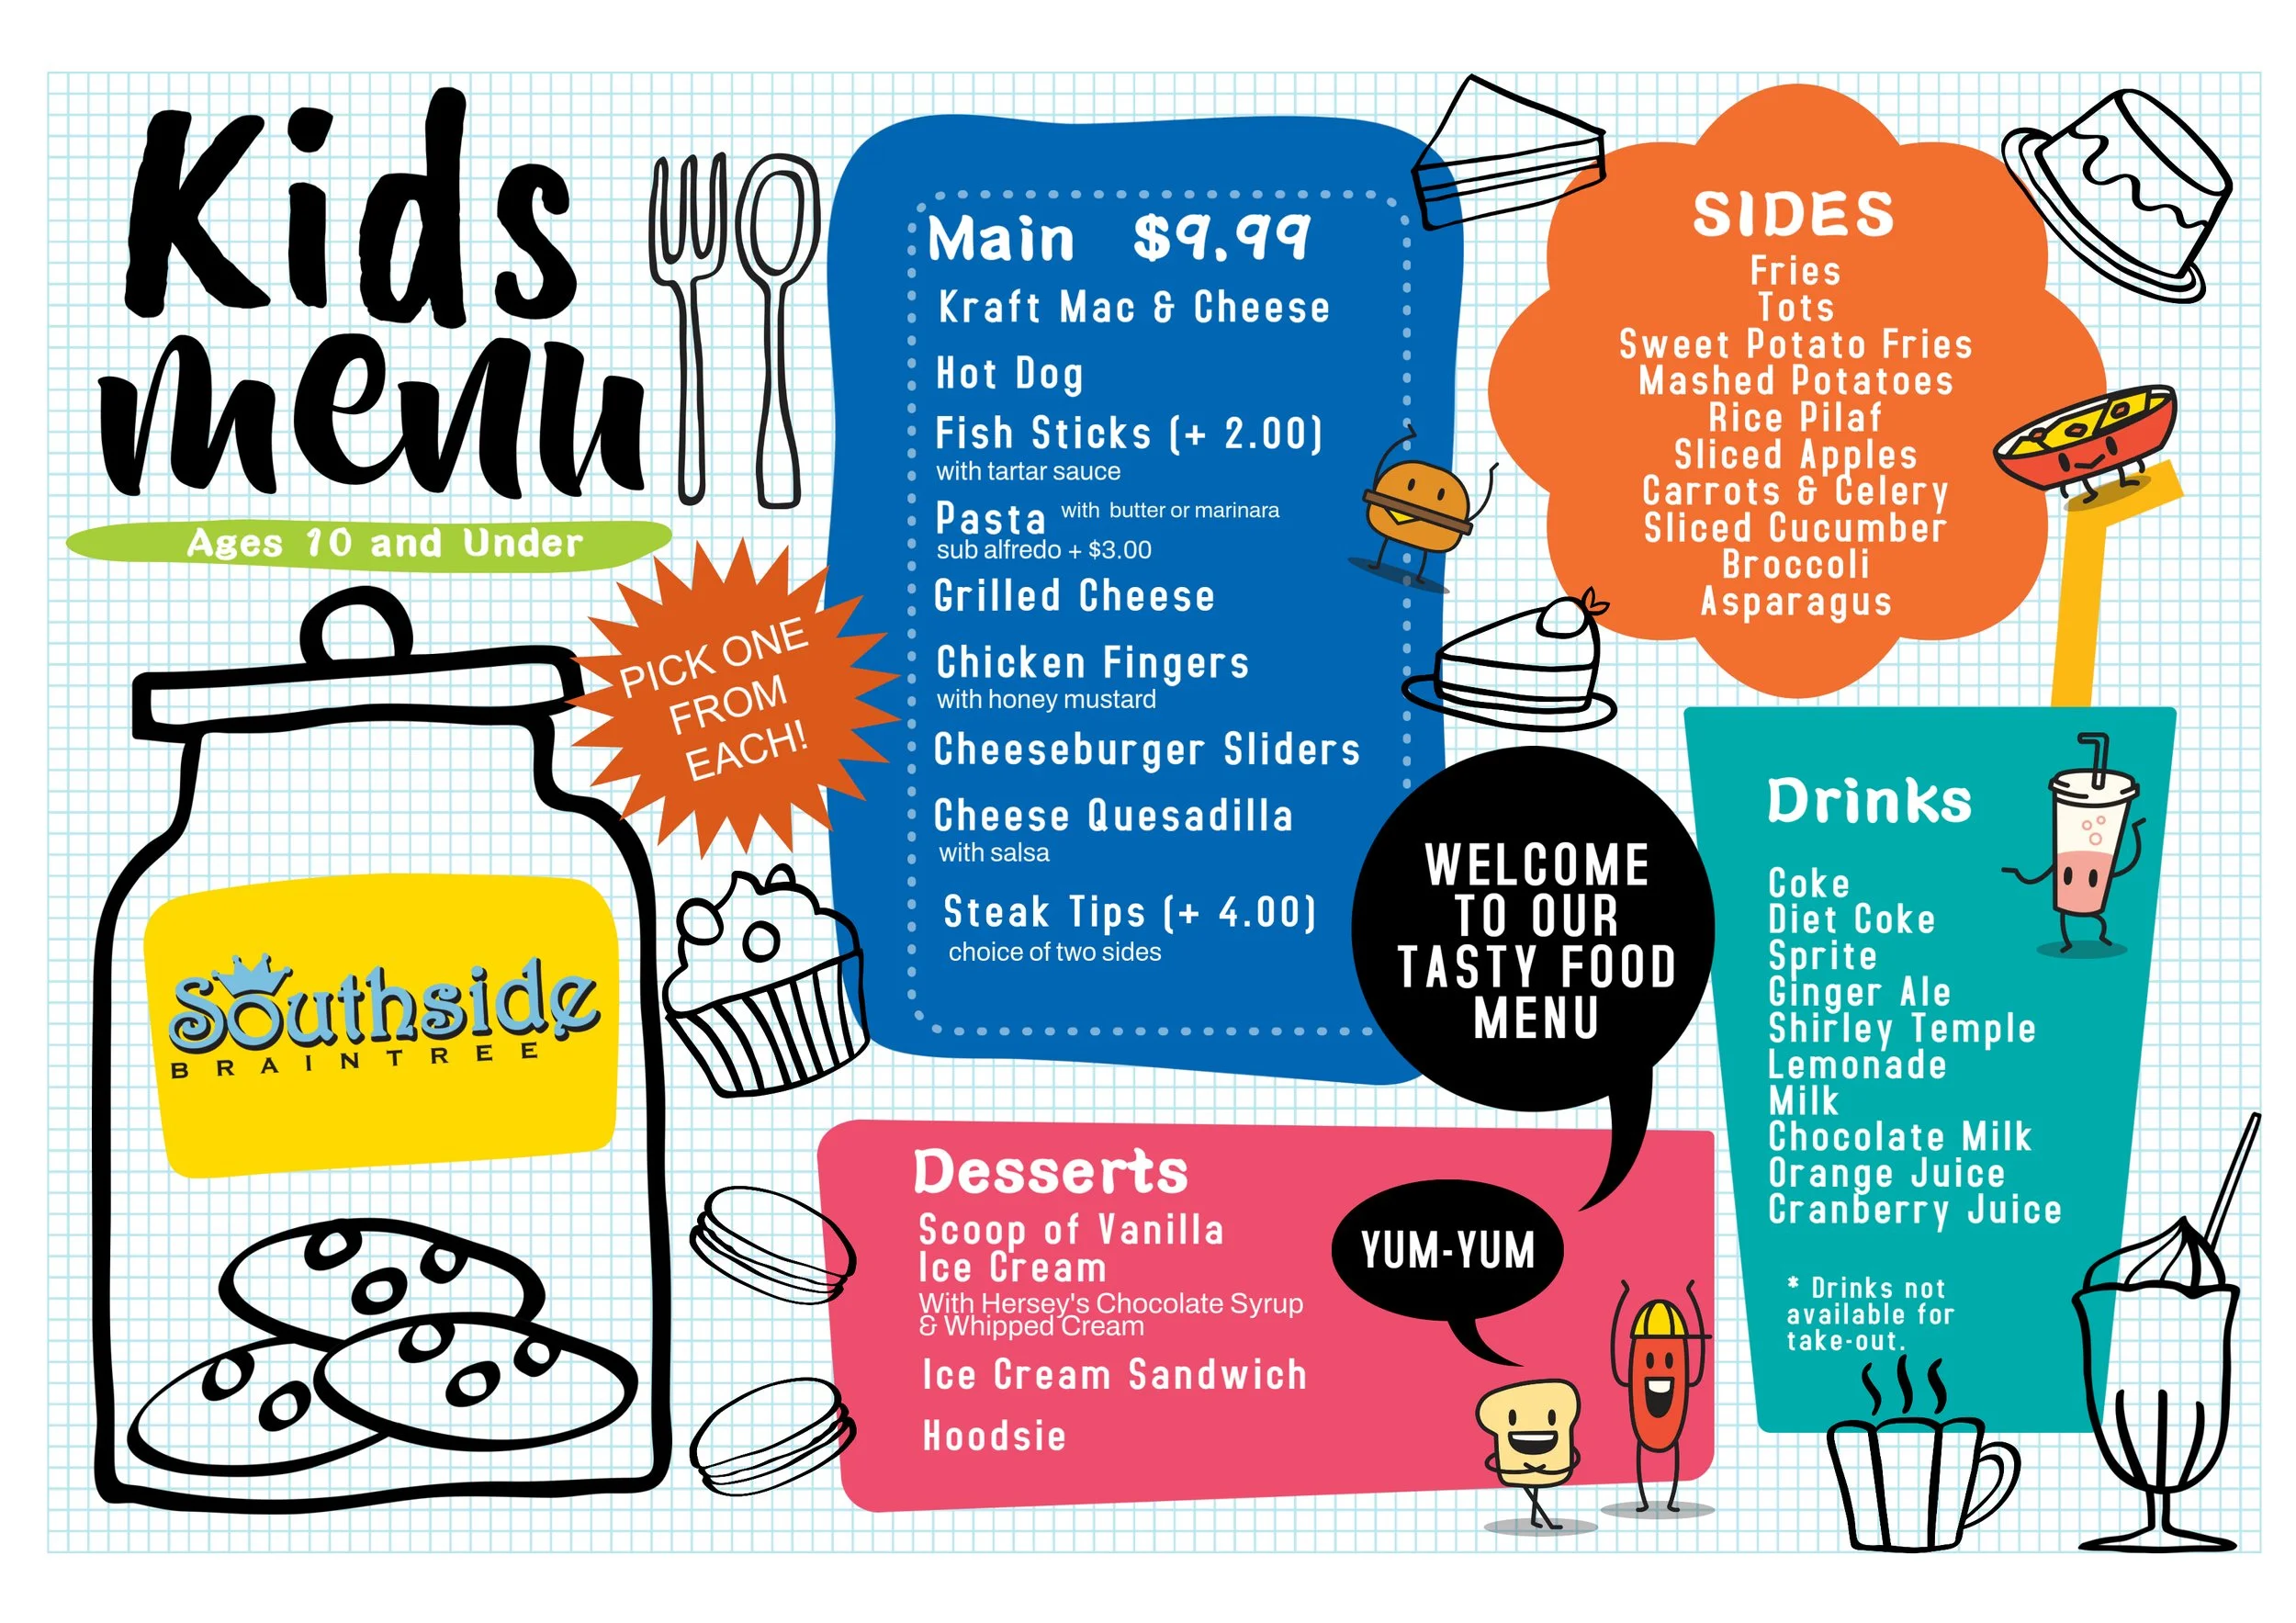 Kids
menu
Ages 10 and Under
PICK ONE
FROM
EACH!
Southside
BRAINTREE
Main $9.99
Kraft Mac & Cheese
Hot Dog
Fish Sticks (+ 2.00)
with tartar sauce
Pasta with butter or marinara
sub alfredo + $3.00
Grilled Cheese
Chicken Fingers
with honey mustard
Cheeseburger Sliders
Cheese Quesadilla
with salsa
Steak Tips (+ 4.00)
choice of two sides
SIDES
Fries
Tots
Sweet Potato Fries
Mashed Potatoes
Rice Pilaf
Sliced Apples
Carrots & Celery
Sliced Cucumber
Broccoli
Asparagus
WELCOME
TO OUR
TASTY FOOD
MENU
Drinks
Coke
Diet Coke
Sprite
Ginger Ale
Shirley Temple
Lemonade
Milk
Chocolate Milk
Orange Juice
Cranberry Juice
* Drinks not
available for
take-out.
Desserts
Scoop of Vanilla
Ice Cream
With Hersey's Chocolate Syrup
& Whipped Cream
Ice Cream Sandwich
Hoodsie
YUM-YUM